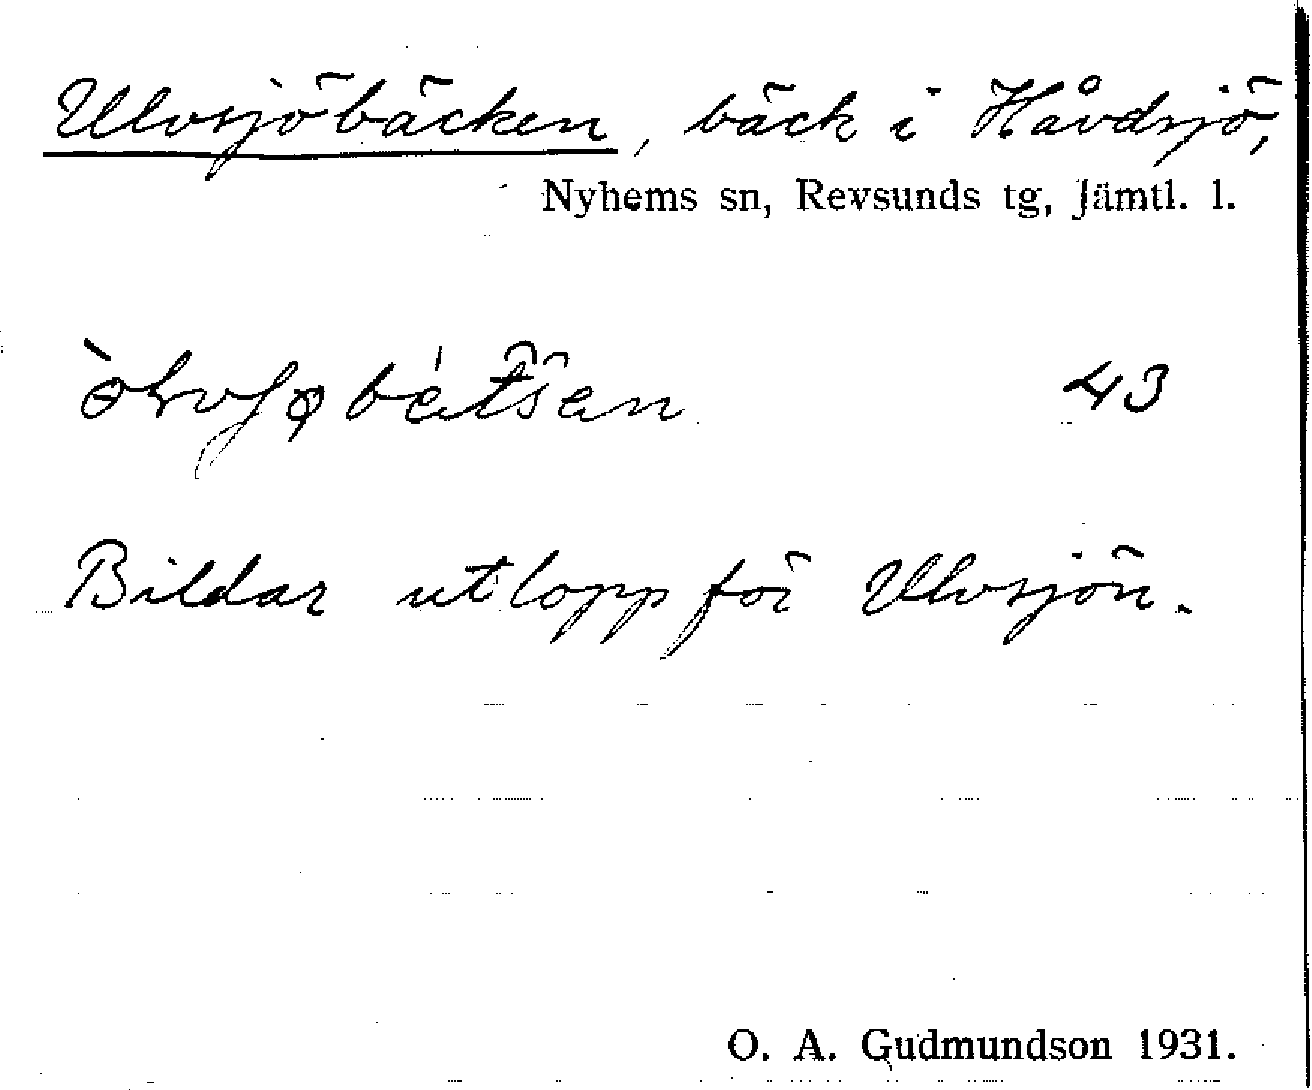 Ulvsjöbäcken, bäck i Håvdsjö,
Nyhems sn, Revsunds tg, Jämtl. l.
43
Bildar utlopp för Ulvsjön.
O. A. Gudmundson 1931.